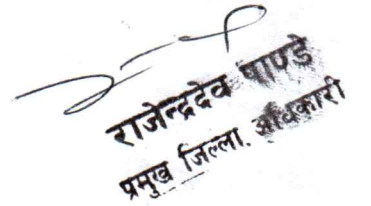 राजेन्द्रदेव पाण्डे
प्रमुख जिल्ला. अधिकारी